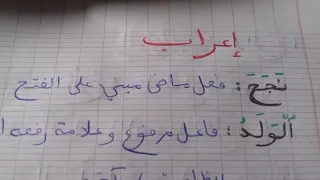 إعراب
نَجَحَ : فعل ماضي مبني على الفتح
اَلْوَلَدُ : فاعل مرفوع وعلامة رفعه ا